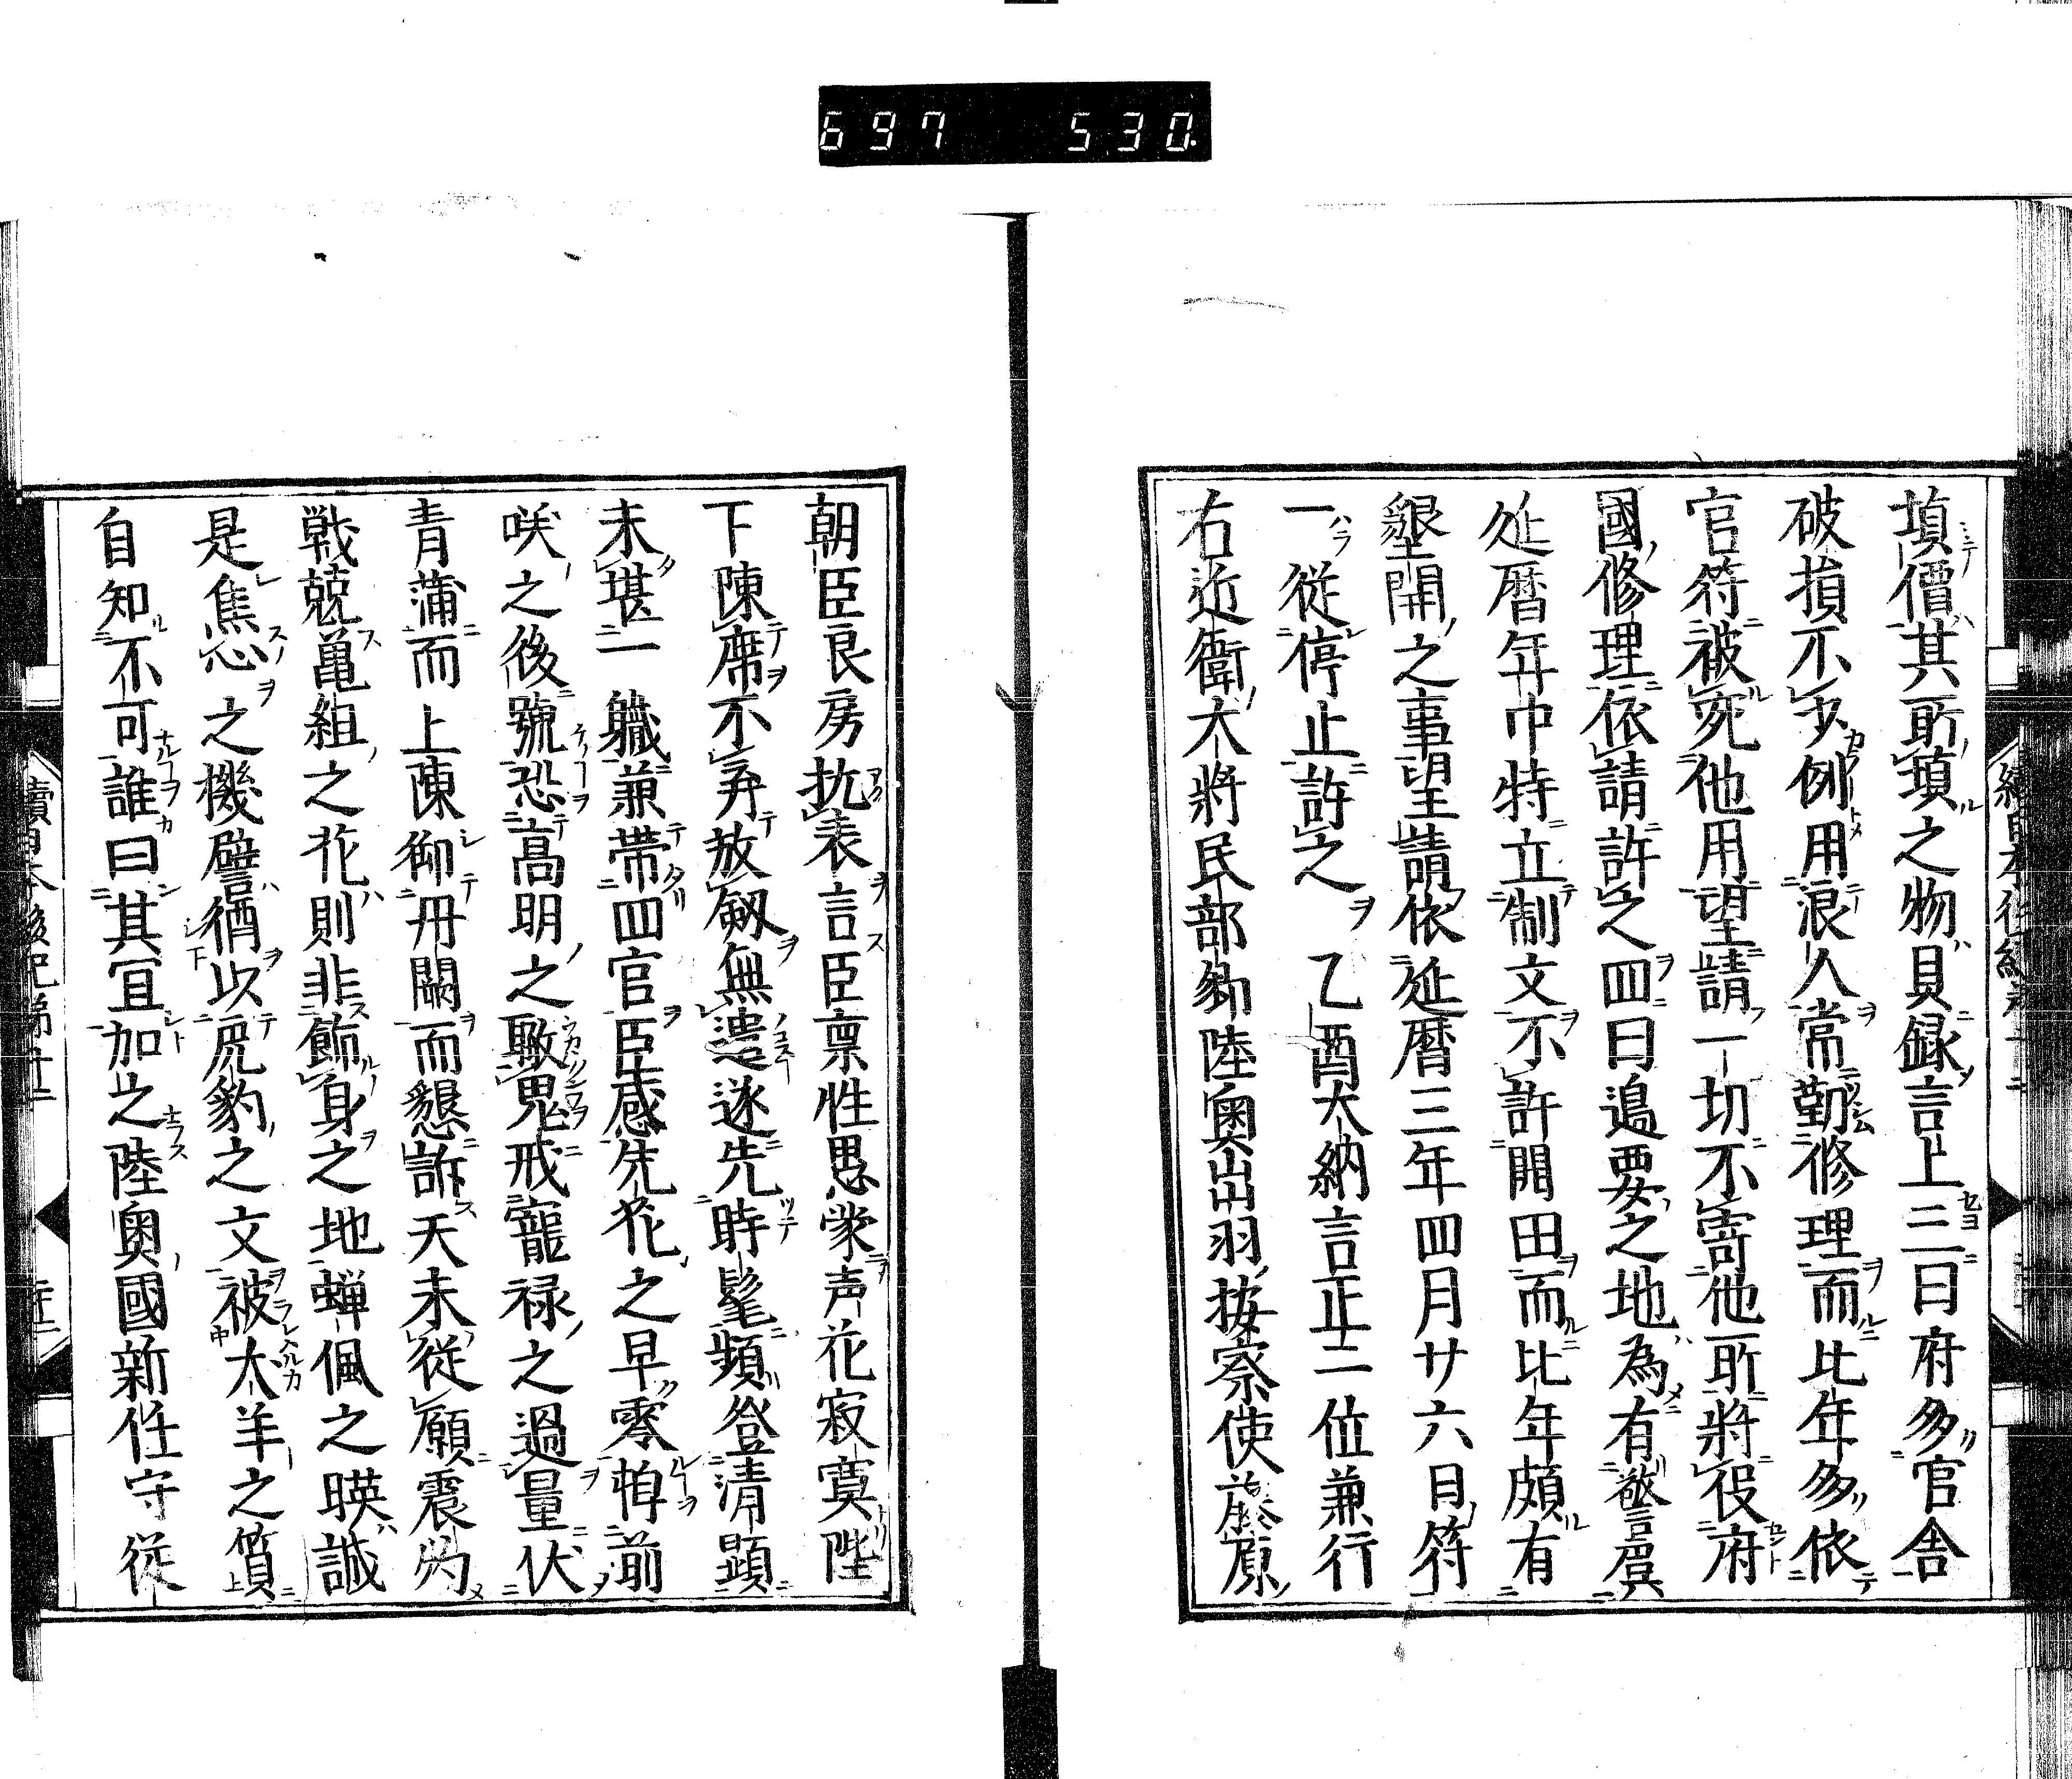 697 530
填價其所填之物具録言上三曰府多官舎
破損不少例用浪人常勤修理而比年多依
官符被宛他用望請一切不寄他所將役府
國修理依請許之四曰邉要之地為有儆虞
延暦年中特立制文不許開田而比年頗有
墾開之事望請依延暦三年四月廿六日符
一從停止許之乙酉大納言正三位兼行
右近衛大將民部卿陸奥出羽按察使藤原
朝臣良房抗表言臣禀性愚蒙声花寂寞陛
下陳席不弃放劔無遺遂先時髦頻登清顕
未堪一職兼帯四官臣感先花之早零悼前
咲之後號恐高明之瞰鬼戒寵禄之過量伏
青蒲而上陳仰丹闕而懇訴天未從願震灼
戦兢亀組之花則非飾身之地蝉佩之暎誠
是焦心之機譬猶以虎豹之文被太羊之質
自知不可誰曰其宜加之陸奥國新任守從